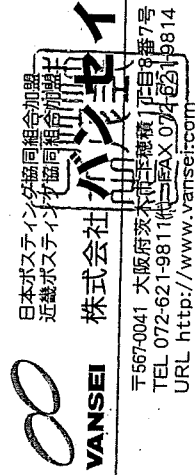 日本ポスティング協同組合加盟
近畿ポスティング協同組合加盟
VANSEI 株式会社 バンセイ
〒567-0041 大阪府茨木市下穂積1丁目8番7号
TEL 072-621-9811㈹ FAX 072-621-9814
URL http://www.vansei.com